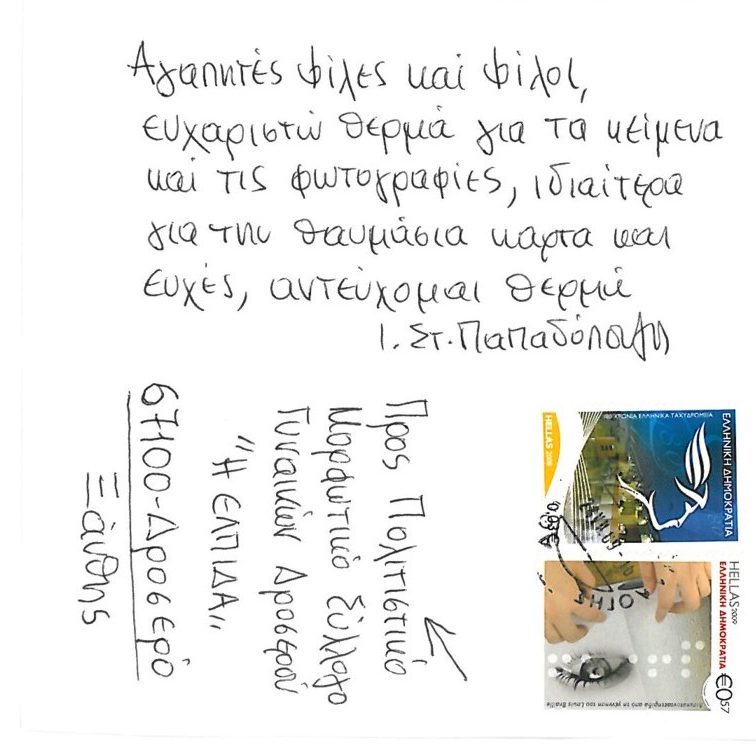 Αγαπητές φίλες και φίλοι,
ευχαριστώ θερμά για τα κείμενα
και τις φωτογραφίες, ιδιαίτερα
για την θαυμάσια καρτα και
ευχές, αντεύχομαι θερμά
Ι. Στ. Παπαδόπουλος
Προς Πολιτιστικό
Μορφωτικό Σύλλογο
Γυναικών Δροσερού
"Η ΕΛΠΙΔΑ"
67100-Δροσερό
Ξάνθης
ΕΛΛΗΝΙΚΗ ΔΗΜΟΚΡΑΤΙΑ
180 ΧΡΟΝΙΑ ΕΛΛΗΝΙΚΑ ΤΑΧΥΔΡΟΜΕΙΑ
HELLAS 2008
HELLAS 2009
ΕΛΛΗΝΙΚΗ ΔΗΜΟΚΡΑΤΙΑ
€0,57
από τη γέννηση του Louis Braille